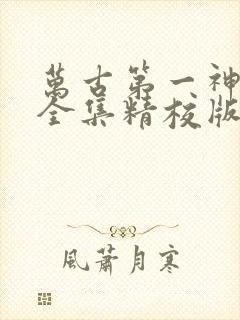 萬古第一神
全集精校版
風蕭月寒